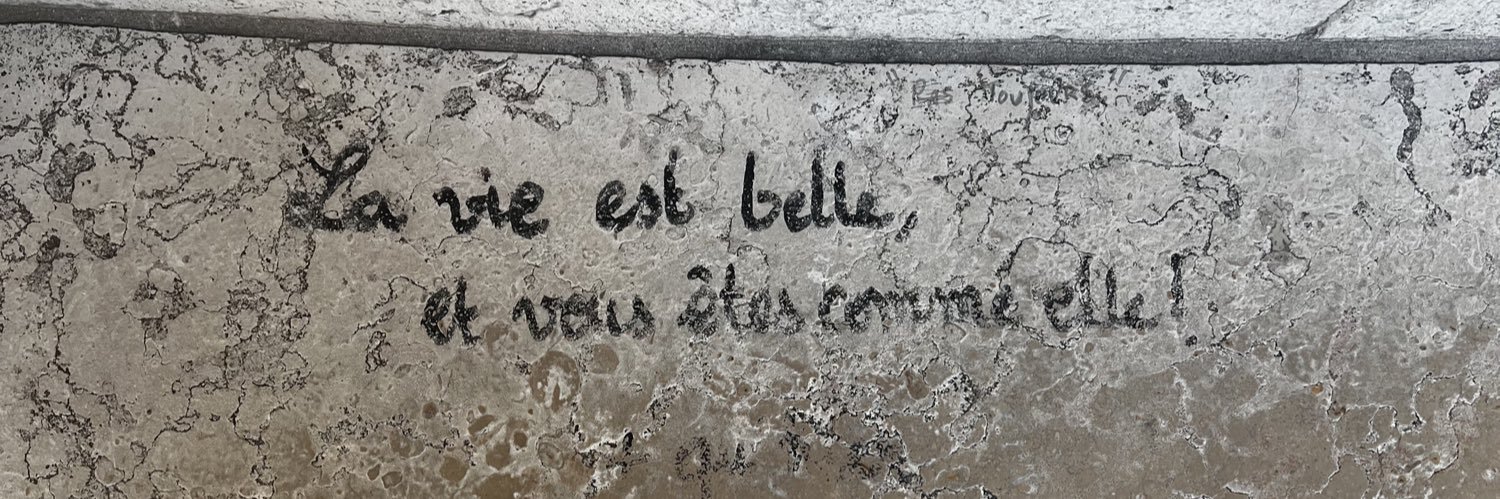 Pas Toujours
La vie est belle,
et vous êtes comme elle !